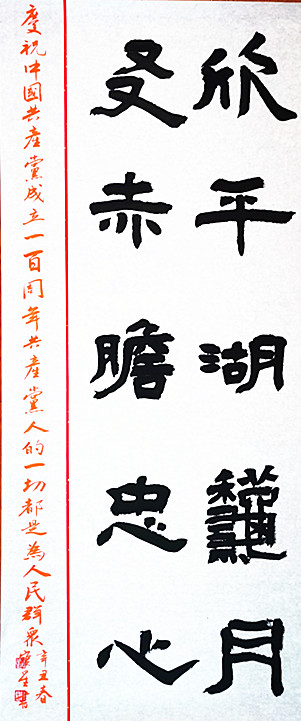 欣平湖龝月
赤膽忠心
慶祝中國共產黨成立一百周年共產黨人的一切都是為人民群衆
辛丑春